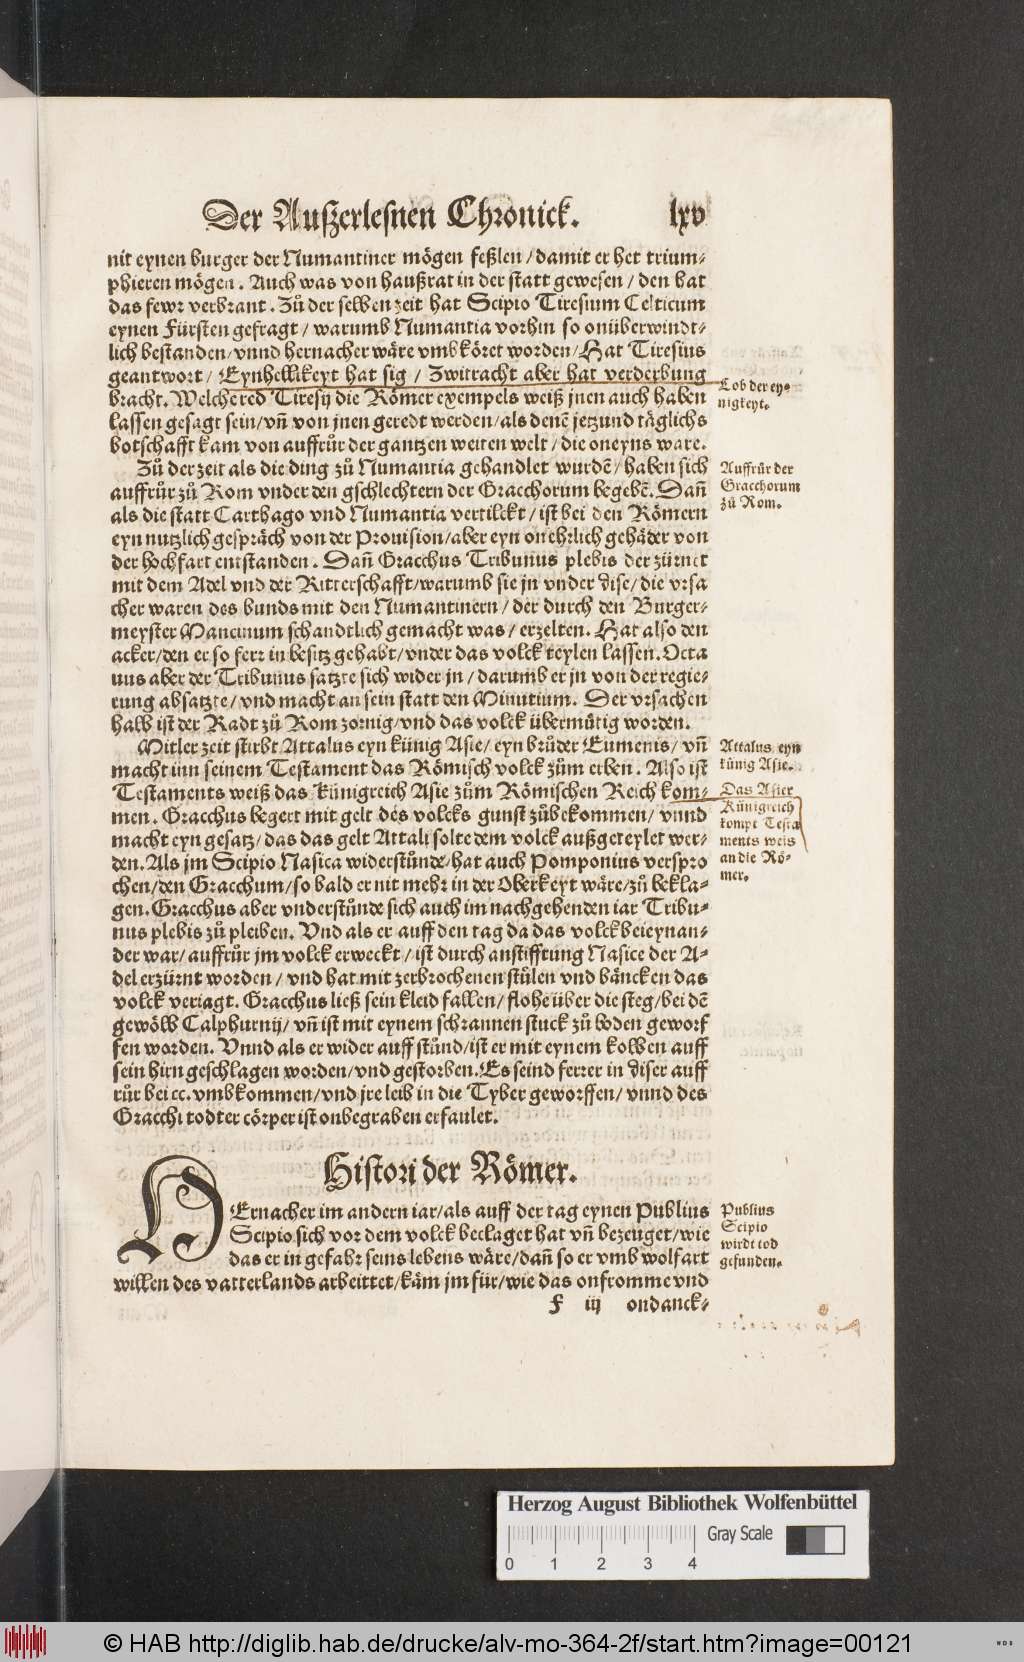 Der Außerlesnen Chronick. lxv
nit eynen burger der Numantiner mögen feßlen / damit er het trium-
phieren mögen. Auch was von haußrat in der statt gewesen / den hat
das fewr verbrant. Zů der selben zeit hat Scipio Tiresium Celticum
eynen Fürsten gefragt / warumb Numantia vorhin so onüberwindt-
lich bestanden / vnnd hernacher wäre vmbköret worden / Hat Tiresius
geantwort / Eynhellikeyt hat sig / Zwitracht aber hat verderbung
bracht. Welche red Tiresij die Römer exempels weiß jnen auch haben
lassen gesagt sein / vñ von jnen geredt werden / als denē jetzund täglichs
botschafft kam von auffrůr der gantzen weiten welt / die oneyns ware.
Lob der ey-
nigkeyt.
Zů der zeit als die ding zů Numantia gehandlet wurdē / haben sich
auffrůr zů Rom vnder den gschlechtern der Gracchorum begebē. Dañ
als die statt Carthago vnd Numantia vertilckt / ist bei den Römern
eyn nutzlich gespräch von der Prouision / aber eyn onehrlich gehäder von
der hochfart entstanden. Dañ Gracchus Tribunus plebis der zürnet
mit dem Adel vnd der Ritterschafft / warumb sie jn vnder dise / die vrsa
cher waren des bunds mit den Numantinern / der durch den Burger-
meyster Mancinum schandtlich gemacht was / erzelten. Hat also den
acker / den er so ferr in besitz gehabt / vnder das volck teylen lassen. Octa
uus aber der Tribunus satzte sich wider jn / darumb er jn von der regie-
rung absatzte / vnd macht an sein statt den Minutium. Der vrsachen
halb ist der Radt zů Rom zornig / vnd das volck übermůtig worden.
Auffrůr der
Gracchorum
zů Rom.
Mitler zeit stirbt Attalus eyn künig Asie / eyn brůder Eumenis / vñ
macht inn seinem Testament das Römisch volck zům erben. Also ist
Testaments weiß das Künigreich Asie zům Römischen Reich kom-
men. Gracchus begert mit gelt des volcks gunst zůbekommen / vnnd
macht eyn gesatz / das das gelt Attali solte dem volck außgeteylet wer-
den. Als jm Scipio Nasica widerstůnde / hat auch Pomponius verspro
chen / den Gracchum / so bald er nit mehr in der Oberkeyt wäre / zů bekla-
gen. Gracchus aber vnderstůnde sich auch im nachgehenden iar Tribu-
nus plebis zů pleiben. Vnd als er auff den tag da das volck beieynan-
der war / auffrůr jm volck erweckt / ist durch anstifftung Nasice der A-
del erzürnt worden / vnd hat mit zerbrochenen stůlen vnd bäncken das
volck veriagt. Gracchus ließ sein kleid fallen / flohe über die steg / bei dē
gewölb Calphurnij / vñ ist mit eynem schrannen stuck zů boden geworf
fen worden. Vnnd als er wider auff stůnd / ist er mit eynem kolben auff
sein hirn geschlagen worden / vnd gestorben. Es seind ferrer in diser auff
růr bei cc. vmbkommen / vnd jre leib in die Tyber geworffen / vnnd des
Gracchi todter cörper ist onbegraben erfaulet.
Attalus eyn
künig Asie.
Das Asier
Künigreich
kompt Testa
ments weis
an die Rö-
mer.
Histori der Römer.
HErnacher im andern iar / als auff der tag eynen Publius
Scipio sich vor dem volck beclaget hat vñ bezeuget / wie
das er in gefahr seins lebens wäre / dañ so er vmb wolfart
willen des vatterlands arbeittet / käm jm für / wie das onfromme vnd
F iij ondanck-
Publius
Scipio
wirdt tod
gefunden.
Herzog August Bibliothek Wolfenbüttel
0 1 2 3 4 Gray Scale
© HAB http://diglib.hab.de/drucke/alv-mo-364-2f/start.htm?image=00121